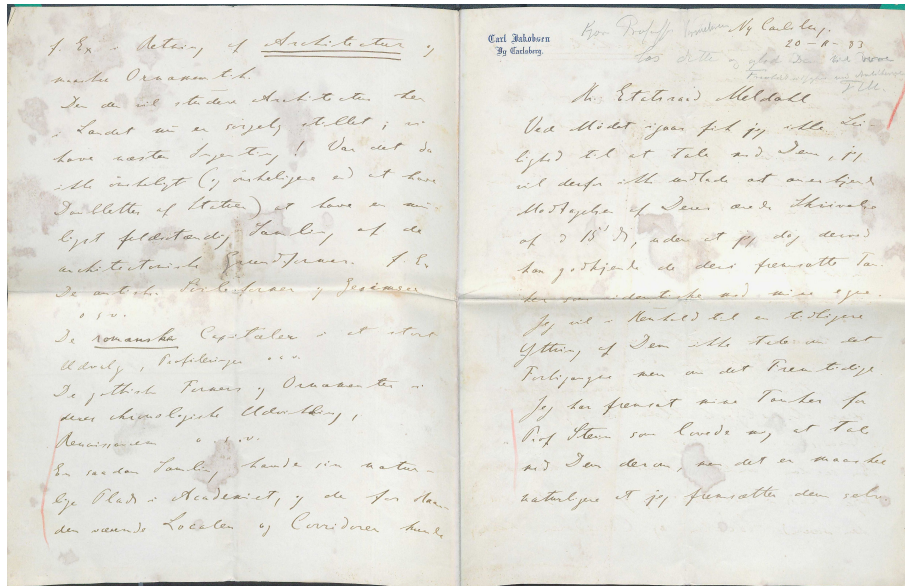 f. Ex i Retning af Architectur og
maaske Ornamentik.
Den der vil studere Architectur her
i Landet nu er sørgelig stillet; vi
have næsten Ingenting! Var det da
ikke ønskeligt (og ønskeligere end at have
Doubletter af Statuer) at have en mu-
ligst fuldstændig Samling af de
architectoniske Grundformer. f. Ex
De antike Søileformer og Gesimser
o. s. v.
De romanske Capitæler i et stort
Udvalg, Profileringer o. s. v.
De gothiske Formers og Ornamenter i
deres chronologiske Udvikling,
Renaissancen o. s. v.
En saadan Samling havde sin natur-
lige Plads i Academiet, og de for Haan-
den værende Localer og Corridorer kunde
Carl Jakobsen
Ny Carlsberg.
Ny Carlsberg.
20-11-83
Hr. Etatsraad Meldahl
Ved Mødet igaar fik jeg ikke Lei-
lighed til at tale med Dem, jeg
vil derfor ikke undlade at anerkjende
Modtagelsen af Deres ærede Skrivelse
af d 15' ds, uden at jeg dog derved
kan godkjende de deri fremsatte Tan-
ker som identiske med mine egne.
Jeg vil i Henhold til en tidligere
Yttring af Dem ikke tale om det
Forbigangne men om det Fremtidige
Jeg har fremsat mine Tanker for
Prof Stein som lovede mig at tale
med Dem derom, men det er maaskee
naturligere at jeg fremsætter dem selv